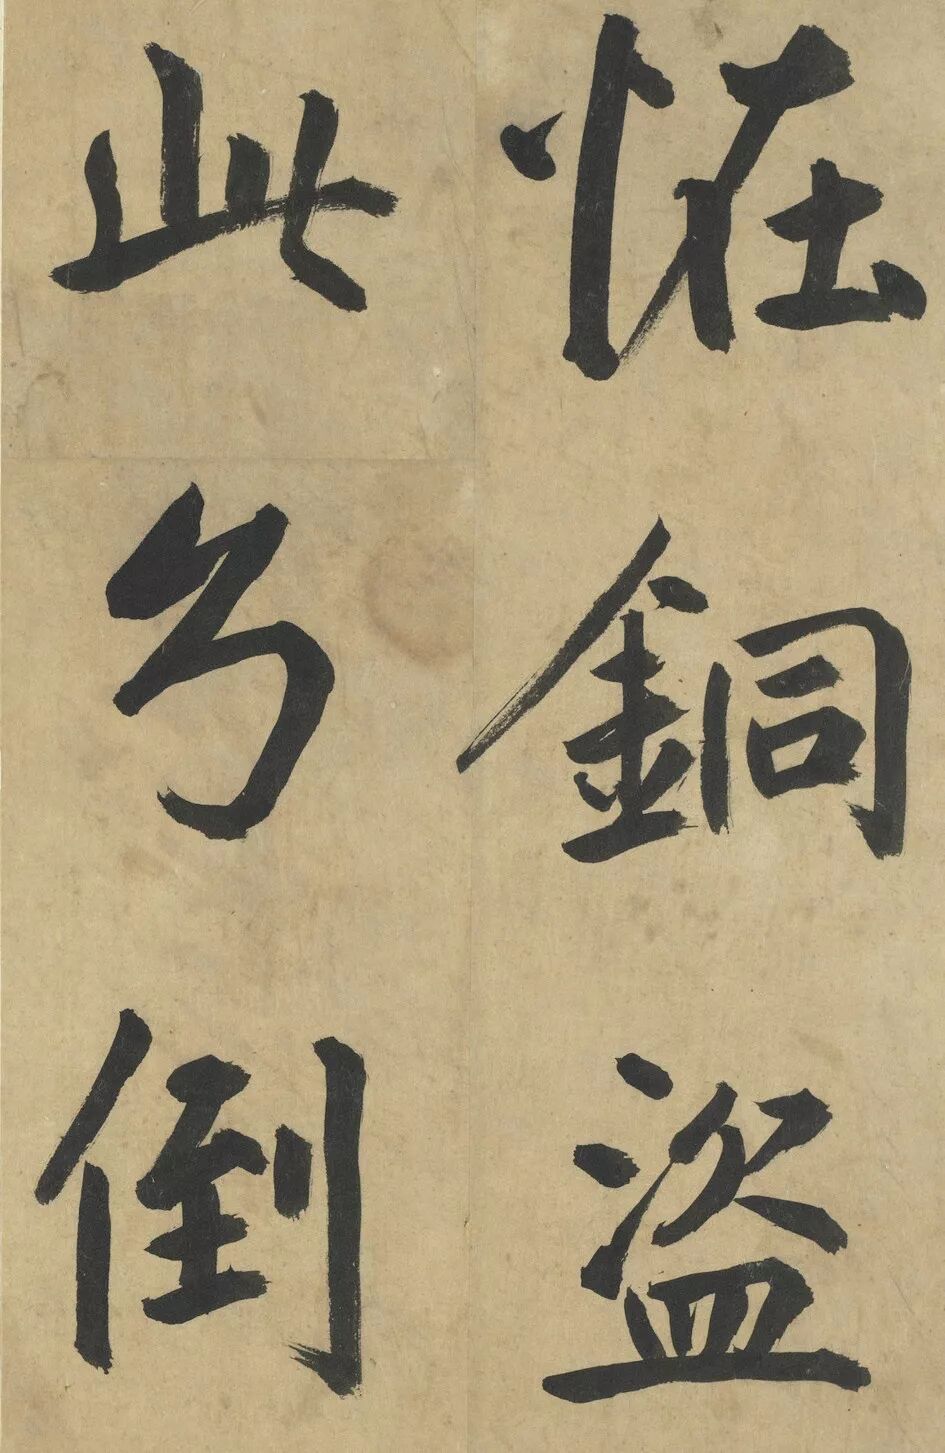 恠銅盜
此弓倒